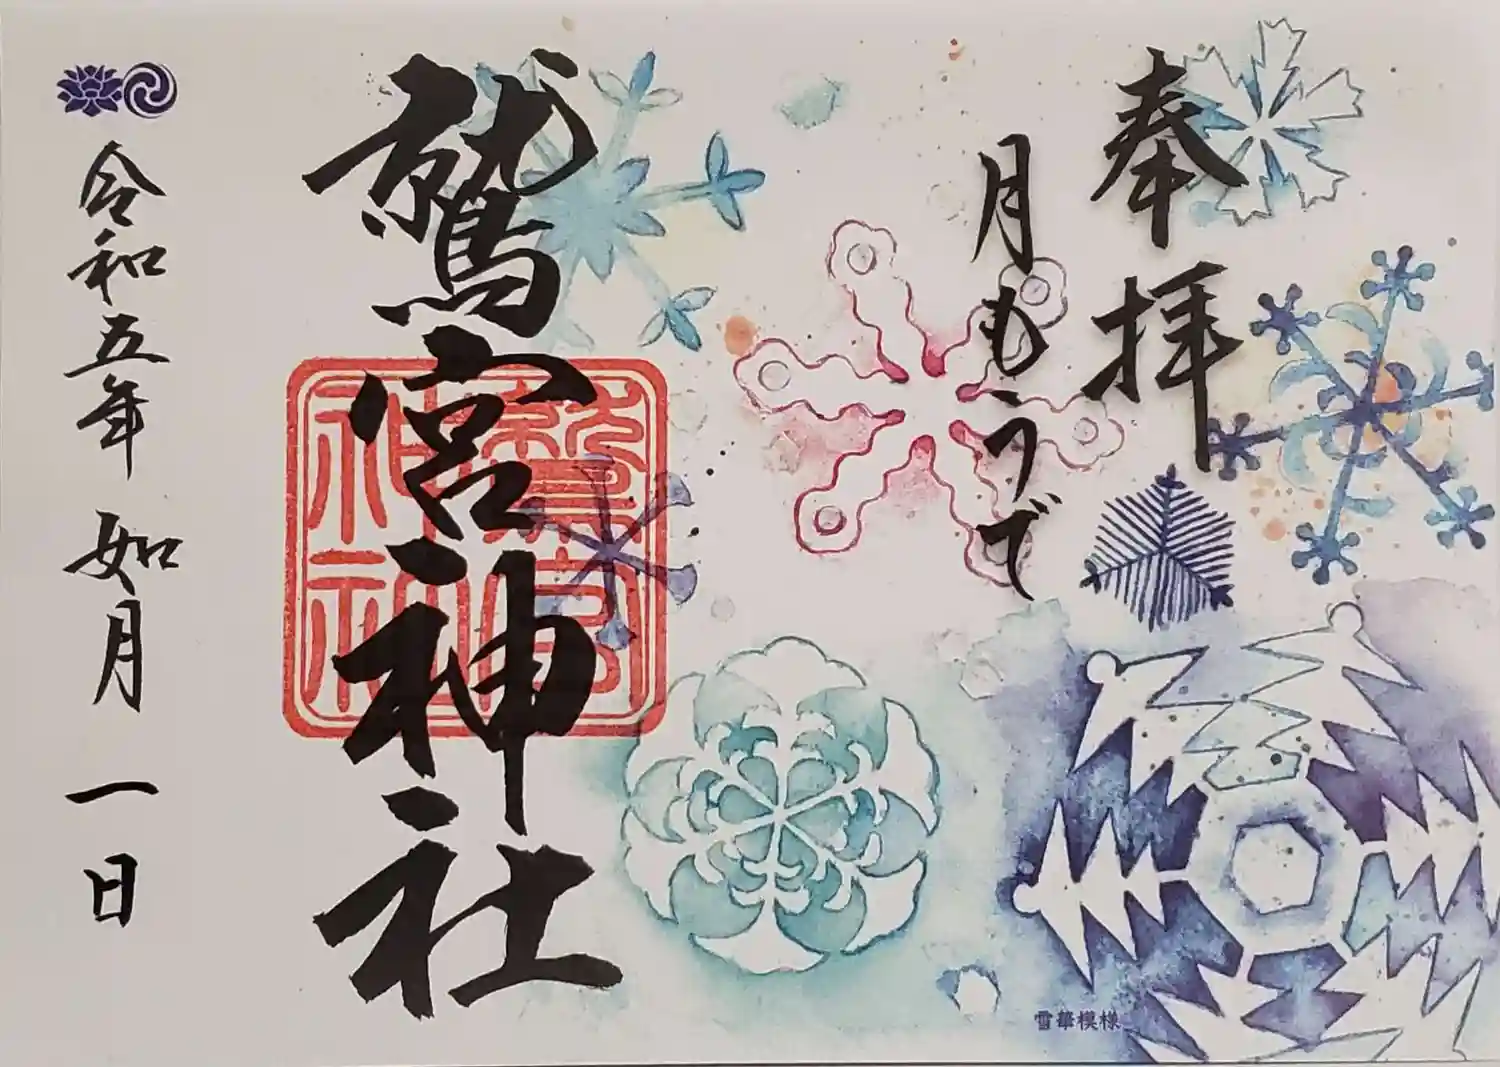 奉拝
月もうで
鷲宮神社
鷲宮神社
令和五年 如月 一日
雪華模様